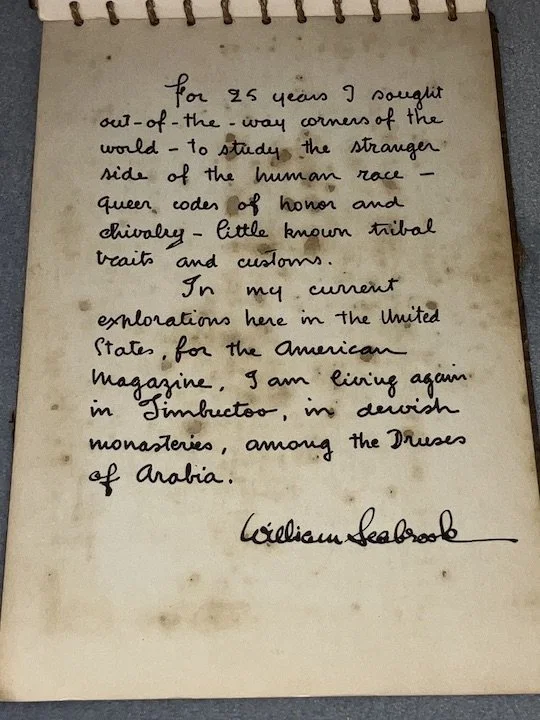 For 25 years I sought
out-of-the-way corners of the
world - to study the stranger
side of the human race -
queer codes of honor and
chivalry - little known tribal
traits and customs.
In my current
explorations here in the United
States, for the American
Magazine, I am living again
in Timbuctoo, in dervish
monasteries, among the Druses
of Arabia.
William Seabrook